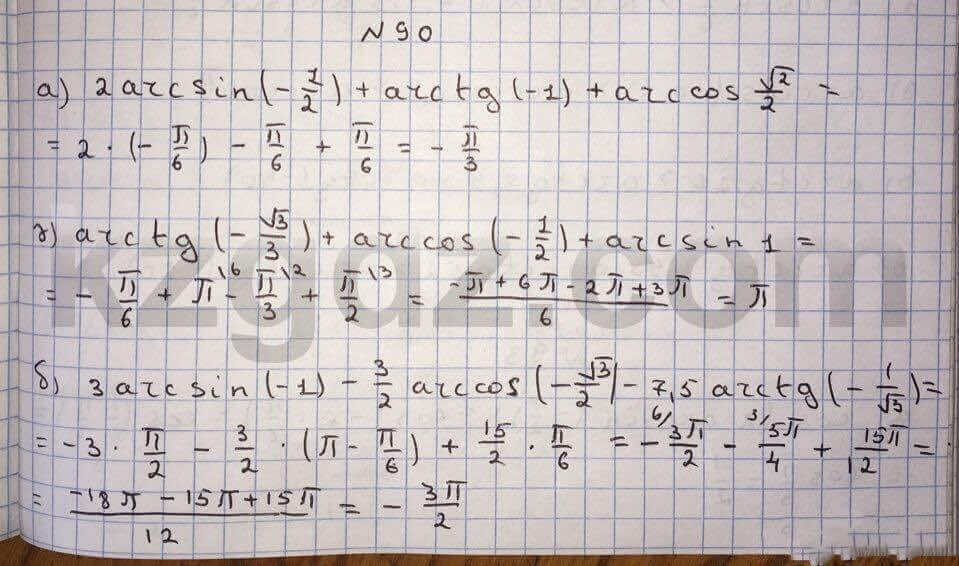 N 90
а) 2 arcsin(-1/2) + arctg(-1) + arccos √2/2 =
= 2 · (-π/6) - π/6 + π/6 = - π/3
г) arctg(-√3/3) + arccos(-1/2) + arcsin 1 =
= - π/6 + π\6 - π/3\2 + π/2\3 = (-π + 6π - 2π + 3π)/6 = π
б) 3 arcsin(-1) - 3/2 arccos(-√3/2) - 7,5 arctg(-1/√3) =
= -3 · π/2 - 3/2 · (π - π/6) + 15/2 · π/6 = - 6/3π/2 - 3/5π/4 + 15π/12 =
= (-18π - 15π + 15π)/12 = - 3π/2
kzgdz.com